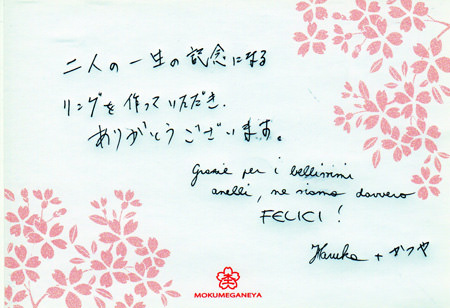 二人の一生の記念になる
リングを作っていただき、
ありがとうございます。
Grazie per i bellissimi
anelli, ne siamo davvero
FELICI!
Haruka + かつや
MOKUMEGANEYA